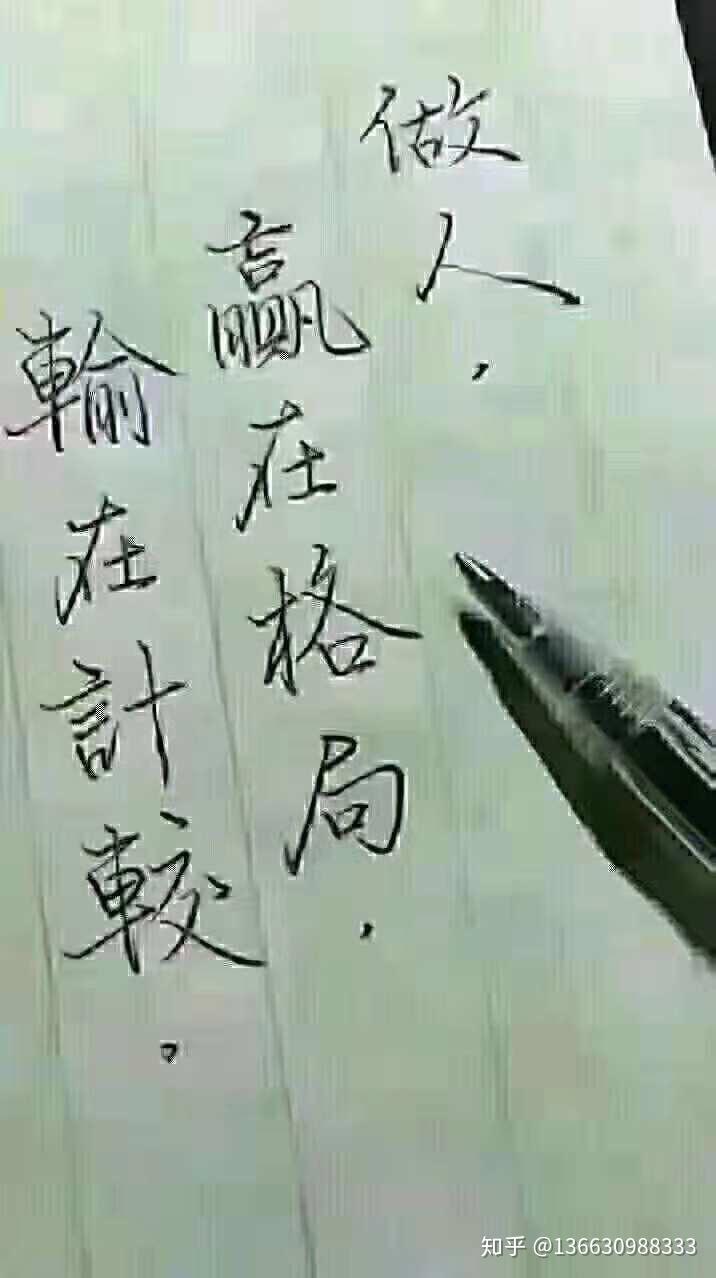 做人，
贏在格局，
輸在計較。
知乎 @136630988333